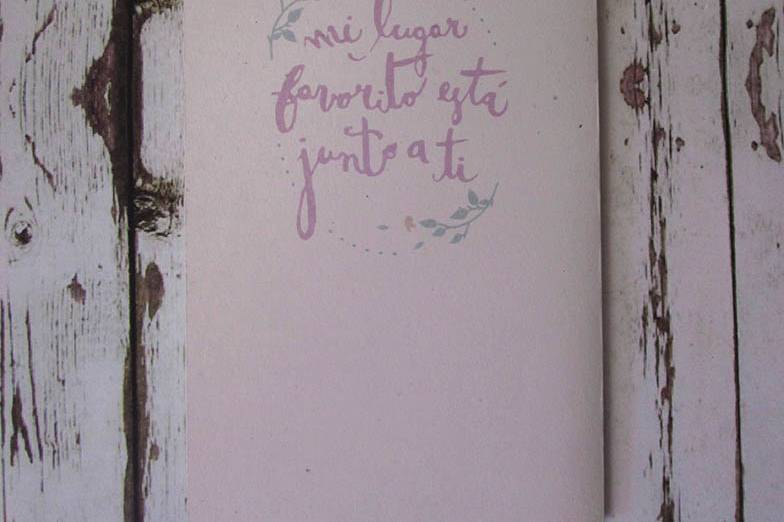 mi lugar
favorito está
junto a ti